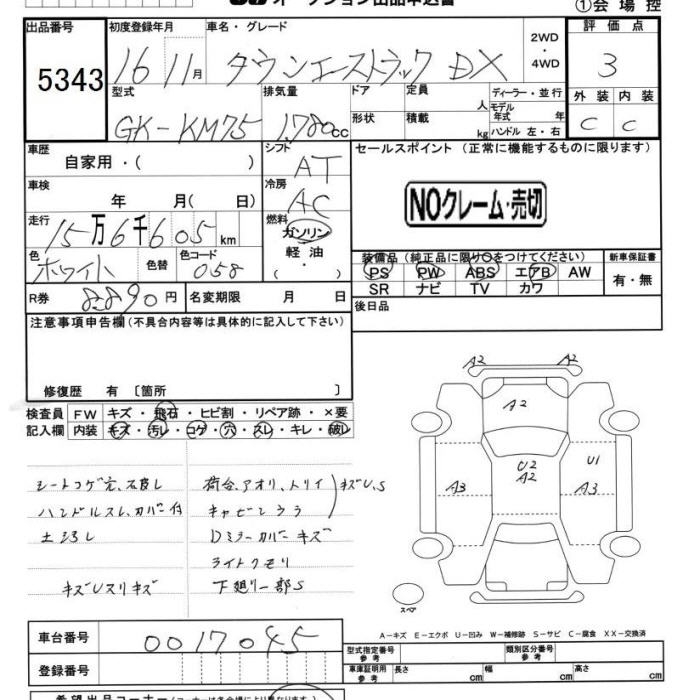 オークション出品申込書
①会場控
出品番号 初度登録年月 車名・グレード 2WD・4WD 評価点
5343 16 11月 タウンエーストラック DX 3
型式 排気量 ドア 定員 人 ディーラー・並行 外装 内装
GK-KM75 1,780cc 形状 積載 kg モデル年式 年 ハンドル 左・右 C C
車歴 自家用・( ) シフト AT セールスポイント (正常に機能するものに限ります)
車検 年 月( 日) 冷房 AC
NOクレーム・売切
走行 15万6千605km 燃料 ガソリン 軽油・( )
色 ホワイト 色替 色コード 058
装備品(純正品に限り○をつけてください) 新車保証書
PS PW ABS エアB AW 有・無
SR ナビ TV カワ
R券 8890円 名変期限 月 日 後日品
注意事項申告欄(不具合内容等は具体的に記入して下さい)
修復歴 有 〔箇所 〕
検査員 FW キズ・飛石・ヒビ割・リペア跡・×要
記入欄 内装 キズ・汚レ・コゲ・穴・スレ・キレ・破レ
シートコゲ穴、
荷台、アオリ、トリイ キズU、S
ハンドルスレ、カバー付
土汚レ Dミラーカバーキズ
ライトクモリ
キズUスリキズ 下廻り一部S
A2 A2
A2
U2 U1
A2
A3 A3
スペア
A-キズ E-エクボ U-凹み W-補修跡 S-サビ C-腐食 XX-交換済
車台番号 0017045
型式指定番号 参考 類別区分番号 参考
登録番号 車庫証明用 参考 長さ cm 幅 cm 高さ cm
希望出品コーナー